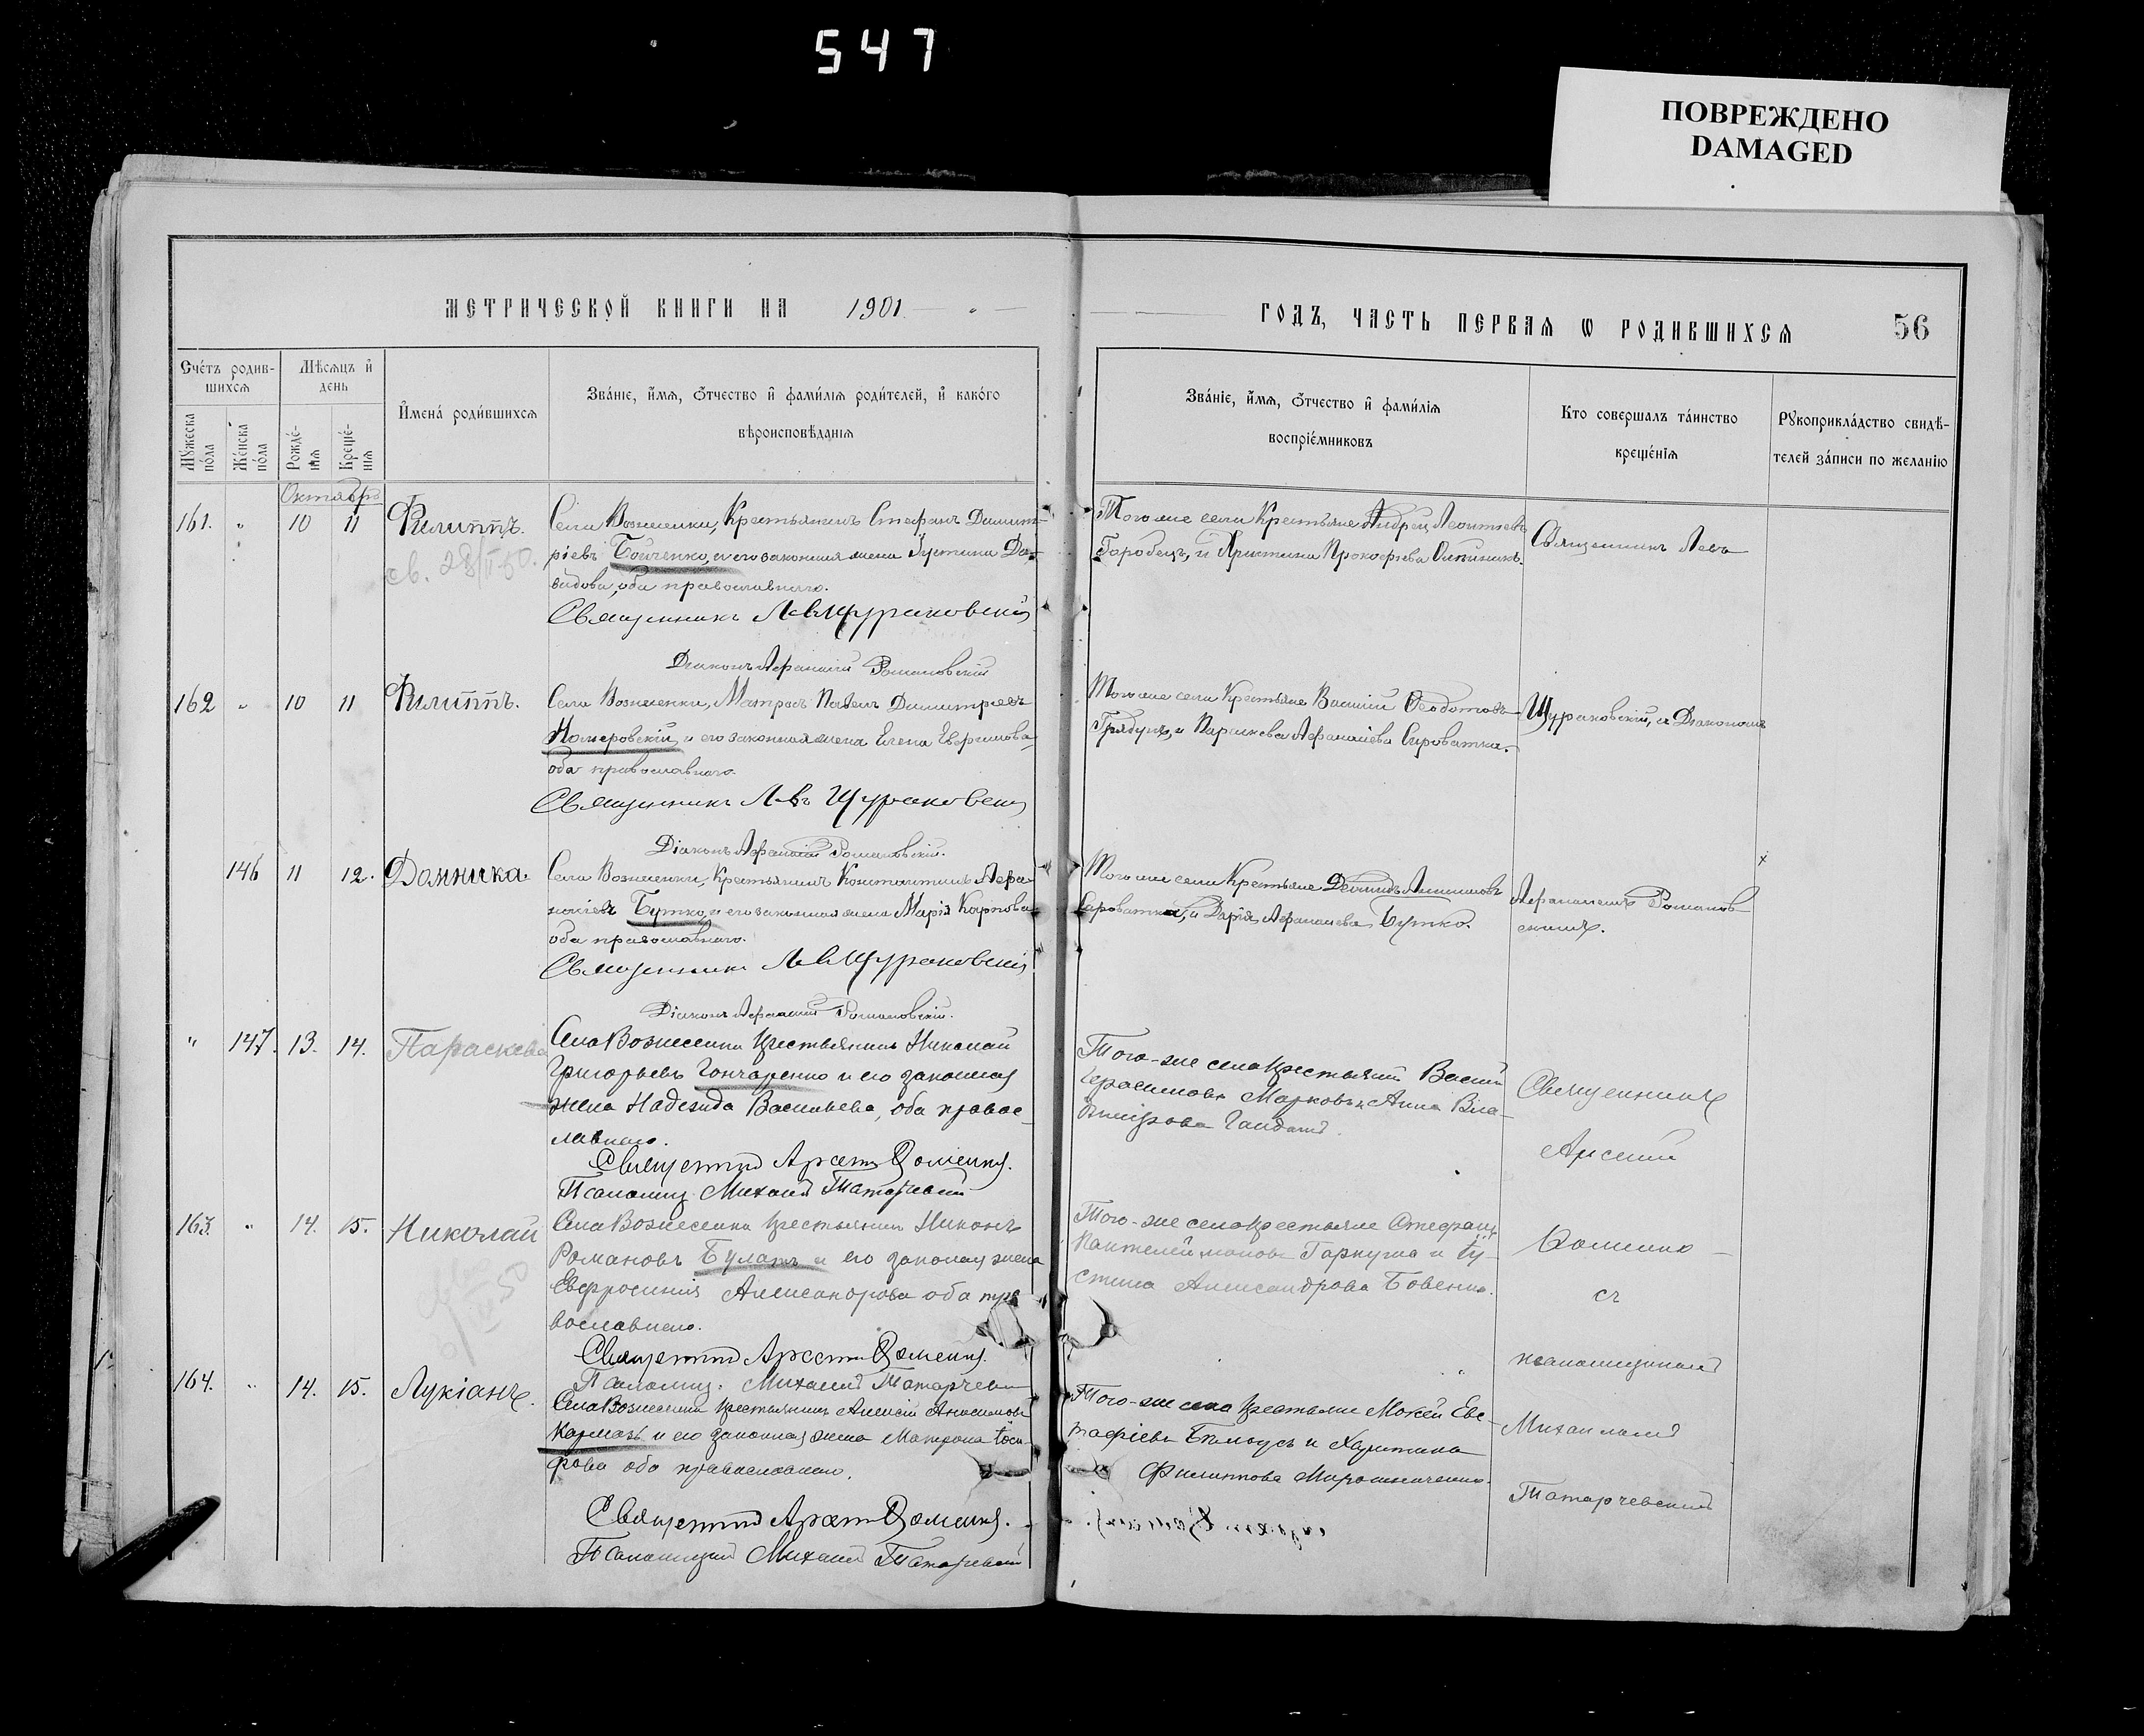 547
ПОВРЕЖДЕНО
DAMAGED
МЕТРИЧЕСКОЙ КНИГИ НА 1901
ГОДЪ, ЧАСТЬ ПЕРВАЯ Ѡ РОДИВШИХСЯ
56
Счетъ родив-
шихся
Мужеска
пола
Женска
пола
Мѣсяцъ и
день
Рожде-
нія
Креще-
нія
Имена родившихся
Званіе, имя, отчество и фамилія родителей, и какого
вѣроисповѣданія
Званіе, имя, отчество и фамилія
воспріемниковъ
Кто совершалъ таинство
крещенія
Рукоприкладство свидѣ-
телей записи по желанію
Октябрь
161. " 10 11 Филиппъ.
св. 28/II-50.
Села Вознесенки, Крестьянинъ Стефанъ Димит-
ріевъ Бойченко, и его законная жена Іустина Да-
видова, оба православнаго.
Священникъ Левъ Щураковскій
Діаконъ Афанасій Романовскій
Того же села Крестьяне Андрей Леонтьевъ
Горобецъ, и Христина Прокофіева Олейникъ.
Священникъ Левъ
162 " 10 11 Филиппъ.
Села Вознесенки, Матросъ Павелъ Димитріевъ
и его законная жена Елена
оба православнаго.
Священникъ Левъ Щураковскій
Діаконъ Афанасій Романовскій.
Того же села Крестьяне Василій Ѳеодотовъ
и Параскева Афанасіева Сыроватка.
Щураковскій, и Діакономъ
146 11 12. Домника.
Села Вознесенки, Крестьянинъ Константинъ Афа-
насіевъ Бутко, и его законная жена Марія Карпова
оба православнаго.
Священникъ Левъ Щураковскій
Діаконъ Афанасій Романовскій.
Того же села Крестьяне
Сыроватка, и Дарія Афанасіева Бутко.
Афанасіемъ Романов-
скимъ.
" 147. 13. 14. Параскева
Села Вознесенки крестьянинъ Николай
Григорьевъ Гончаренко и его законная
жена Надежда Васильева, оба правос-
лавнаго.
Священникъ Арсеній
Псаломщ. Михаилъ Татарчевскій
Того-же села крестьяне Василій
Герасимовъ Марковъ и Анна Вла-
димірова
Священникъ
Арсеній
163. " 14. 15. Николай
Села Вознесенки крестьянинъ Никонъ
Романовъ Булатъ и его законная жена
Евфросинія Александрова оба пра-
вославнаго.
Священникъ Арсеній
Псаломщ. Михаилъ Татарчевскій
Того-же села крестьяне Стефанъ
Пантелеймоновъ Гаркуша и Іу-
стина Александрова Бовенко.
съ
псаломщикомъ
164. " 14. 15. Лукіанъ.
Села Вознесенки крестьянинъ Алексій Анисимовъ
Кармазь и его законная жена Матрона Іоси-
фова оба православнаго.
Священникъ Арсеній
Псаломщикъ Михаилъ Татарчевскій
Того-же села крестьяне Мокей Евс-
тафіевъ Билоусъ и Христина
Филиппова Мирошниченко.
Михаиломъ
Татарчевскимъ